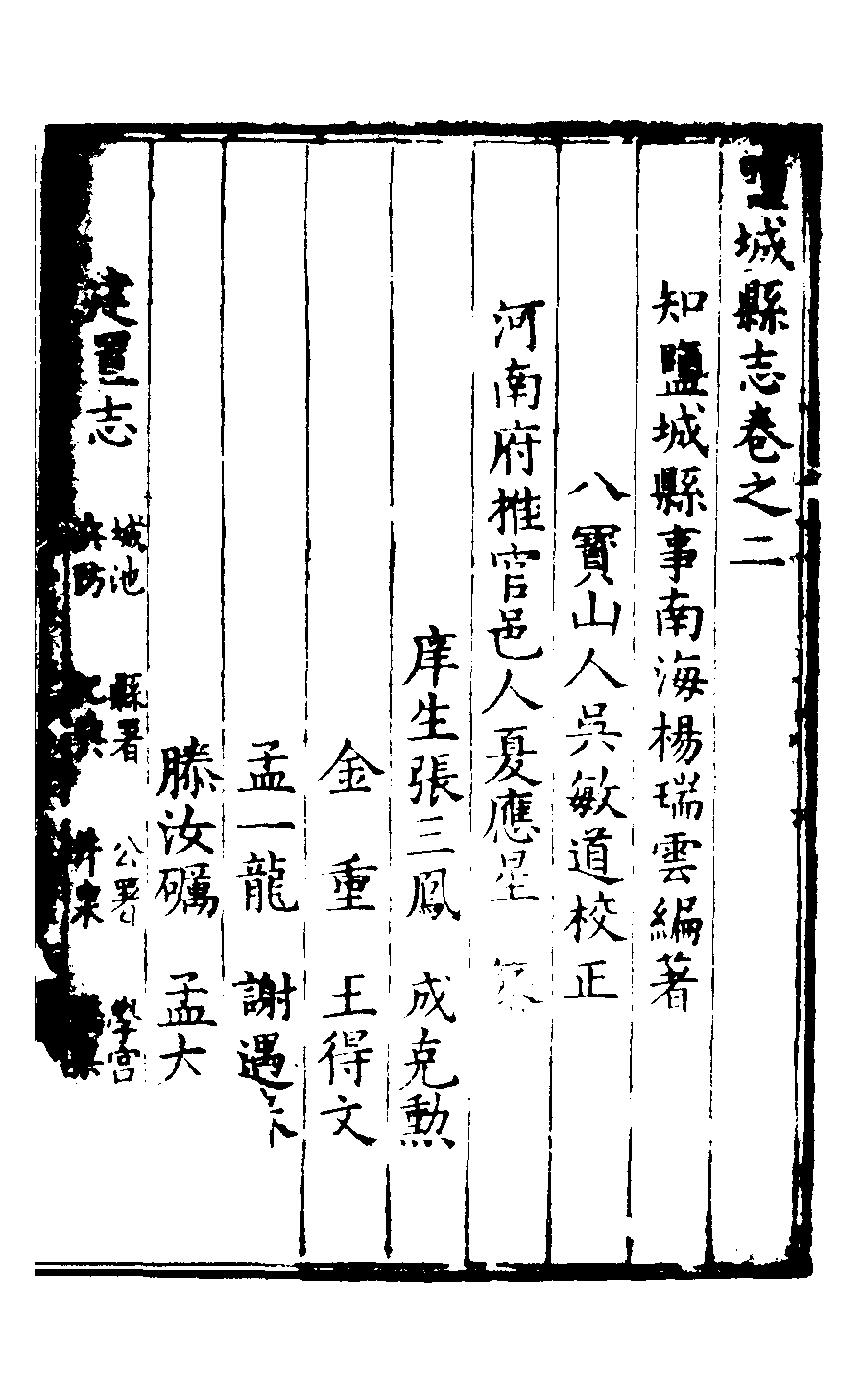 城縣志卷之二
知鹽城縣事南海楊瑞雲編著
八寶山人吳敏道校正
河南府推官邑人夏應星
庠生張三鳳　成克勲
金　重　王得文
孟一龍　謝遇
滕汝礪　孟大
建置志　城池　縣署　公署　學宮
防